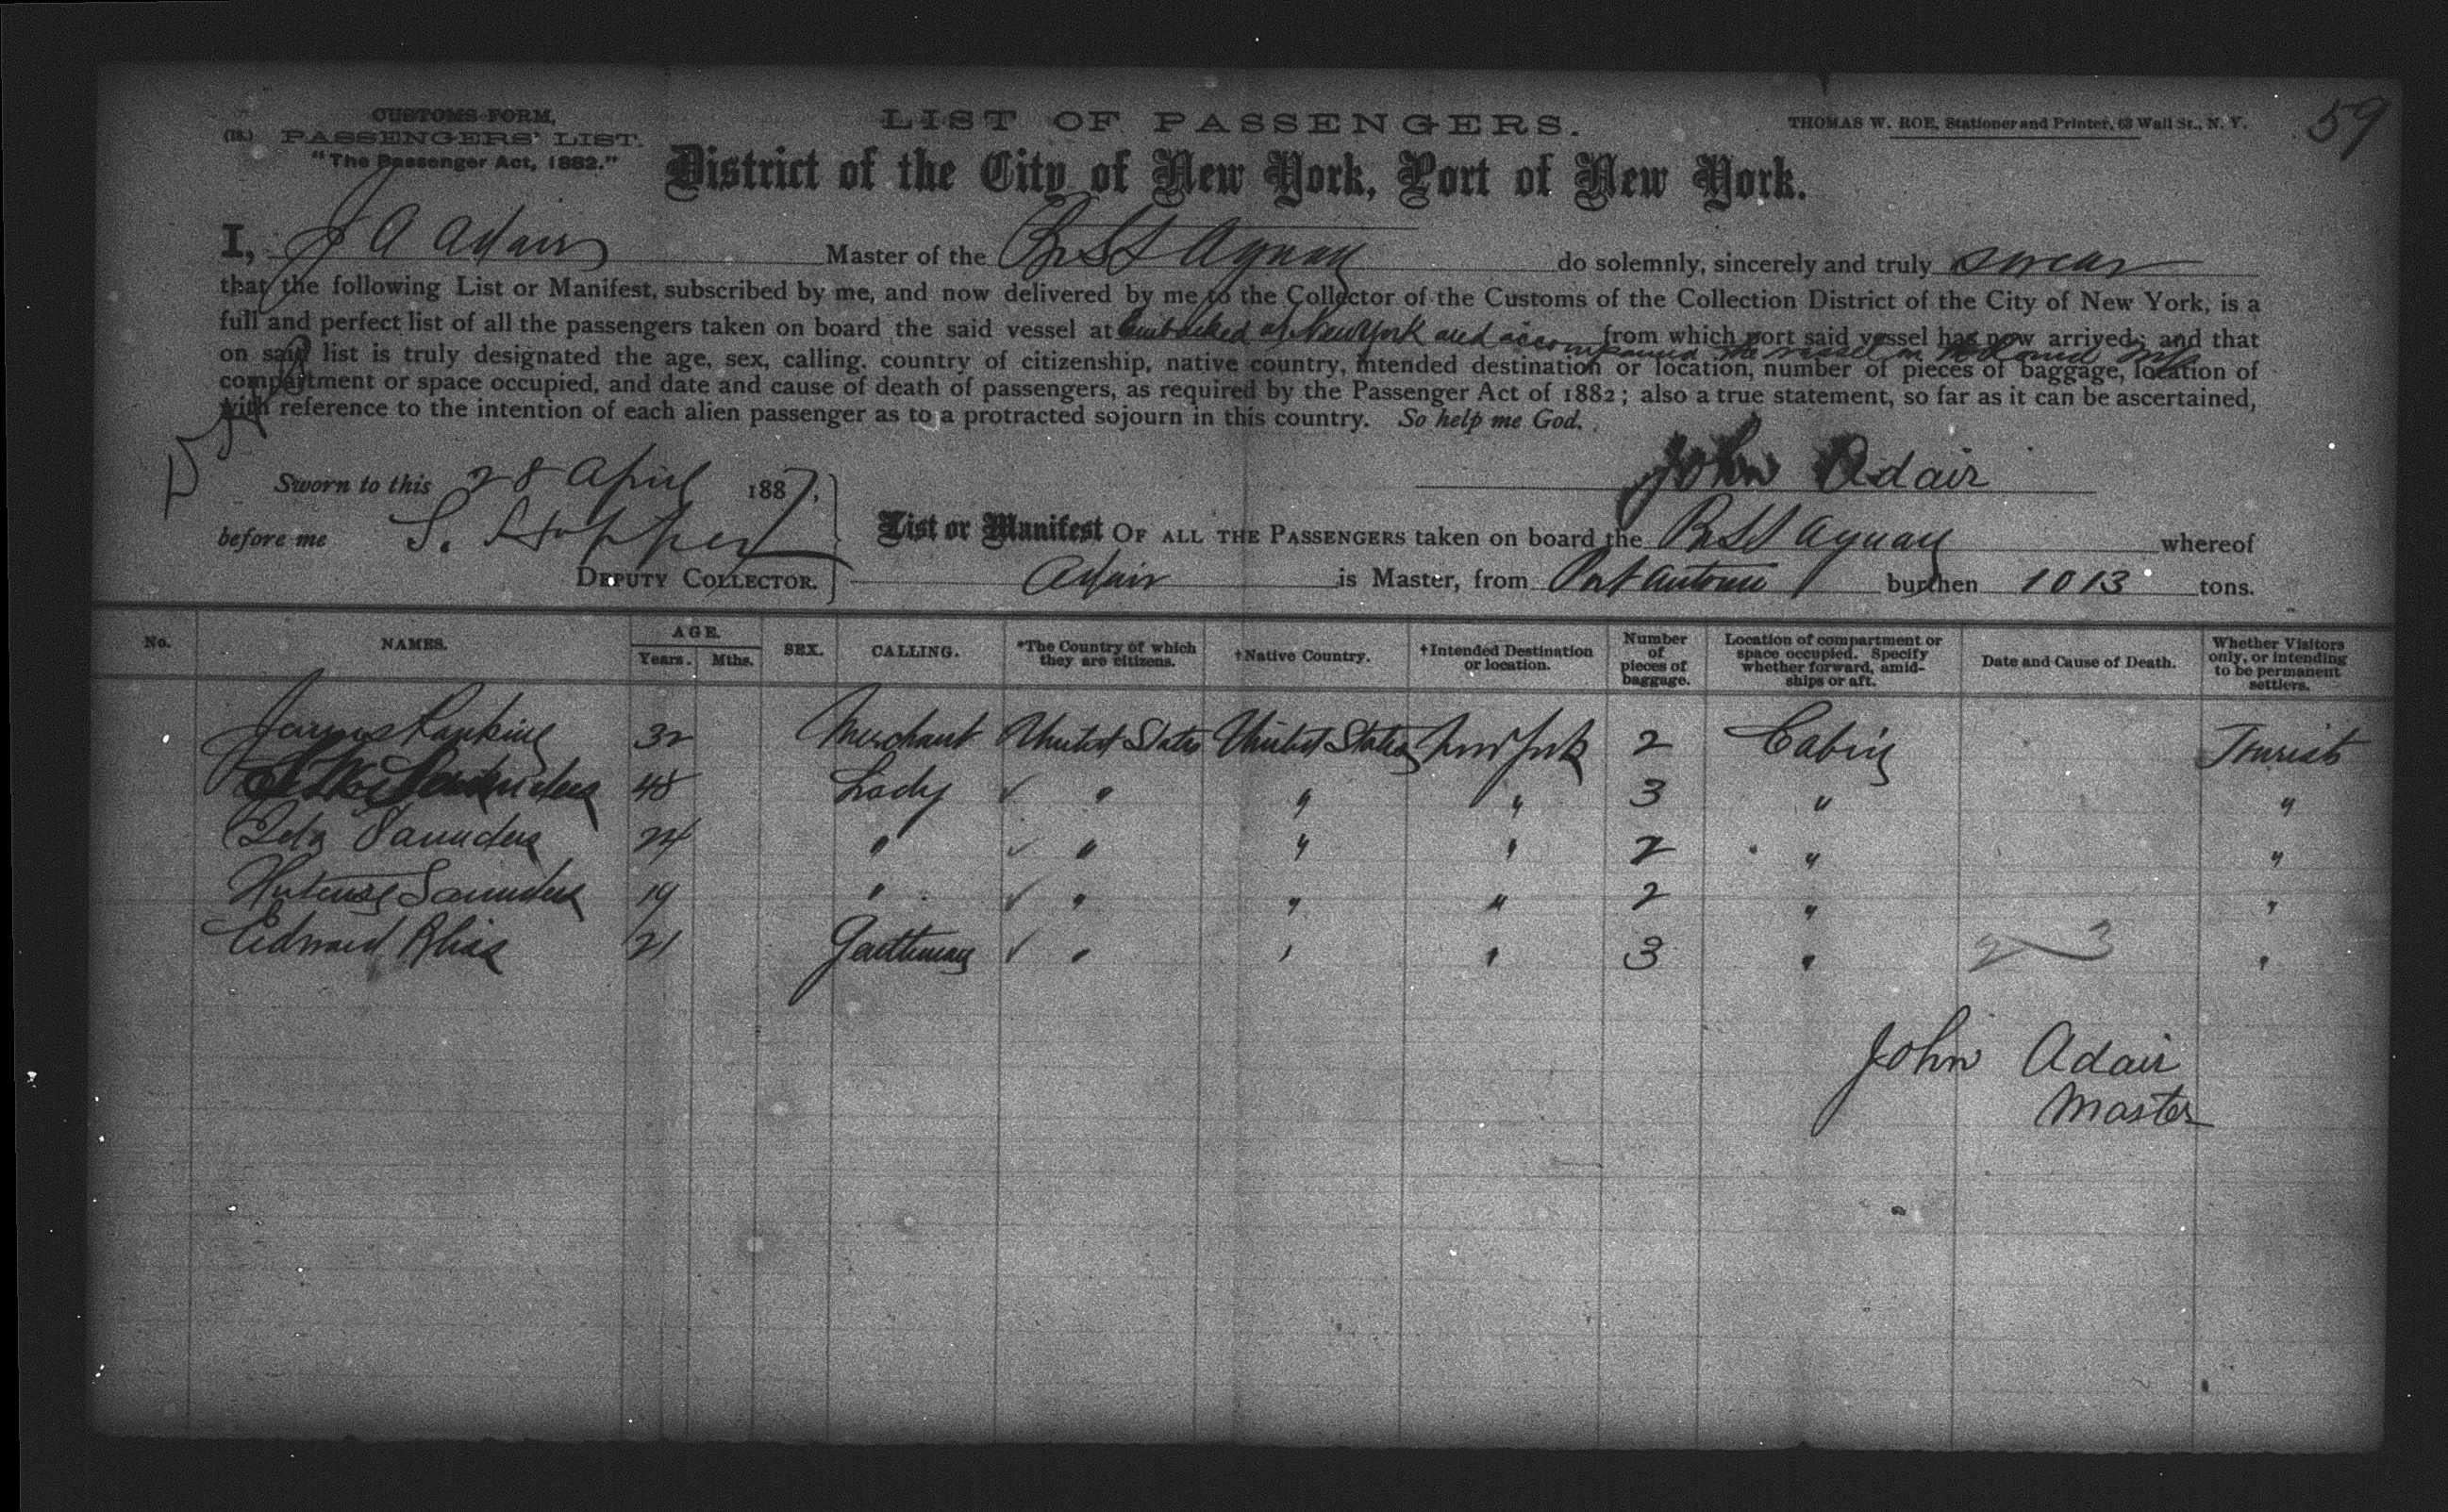 59
CUSTOMS FORM,
(18.) PASSENGERS' LIST.
"The Passenger Act, 1882."
LIST OF PASSENGERS.
THOMAS W. ROE, Stationer and Printer, 63 Wall St., N. Y.
District of the City of New York, Port of New York.
I, J A Adair Master of the Br SS Aguan do solemnly, sincerely and truly swear
that the following List or Manifest, subscribed by me, and now delivered by me to the Collector of the Customs of the Collection District of the City of New York, is a
full and perfect list of all the passengers taken on board the said vessel at embarked at New York and accompanied the vessel on the round trip from which port said vessel has now arrived; and that
on said list is truly designated the age, sex, calling, country of citizenship, native country, intended destination or location, number of pieces of baggage, location of
compartment or space occupied, and date and cause of death of passengers, as required by the Passenger Act of 1882; also a true statement, so far as it can be ascertained,
with reference to the intention of each alien passenger as to a protracted sojourn in this country. So help me God.
John Adair
Sworn to this 28 April 1887,
before me S. Hopper
DEPUTY COLLECTOR.
List or Manifest OF ALL THE PASSENGERS taken on board the Br SS Aguan whereof
Adair is Master, from Port Antonio burthen 1013 tons.
No. NAMES. AGE. Years. Mths. SEX. CALLING. *The Country of which they are citizens. †Native Country. †Intended Destination or location. Number of pieces of baggage. Location of compartment or space occupied. Specify whether forward, amidships or aft. Date and Cause of Death. Whether Visitors only, or intending to be permanent settlers.
James Rankine 32 Merchant United States United States New York 2 Cabin Tourists
Saunders 48 Lady ✓ " " " 3 " "
Saunders 24 " ✓ " " " 2 " "
Hortense Saunders 19 " ✓ " " " 2 " "
Edward Bliss 21 Gentleman ✓ " " " 3 " "
John Adair
Master